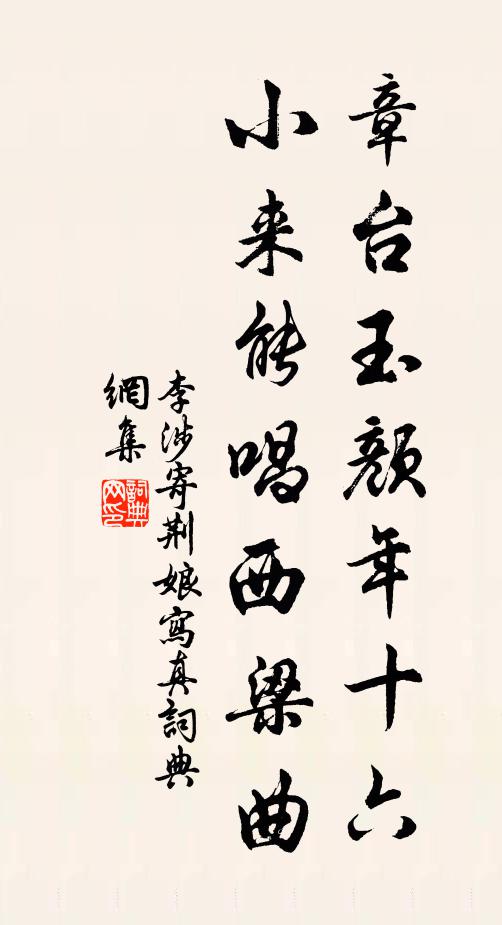 章台玉顏年十六
小来能唱西梁曲
李涉寄荆娘寫真詞典
網集
詞典
网印